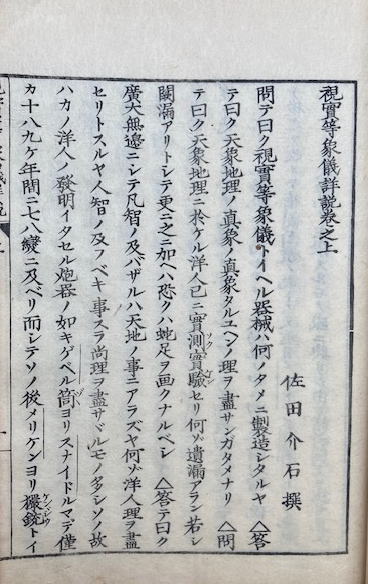 視實等象儀詳說卷之上
佐田介石撰
問テ曰ク視實等象儀トイヘル器械ハ何ノタメニ製造シタルヤ △答
テ曰ク天象地理ノ真象ノ真象タルユヘンノ理ヲ盡サンガタメナリ △問
テ曰ク天象地理ニ於ケル洋人已ニ實測實驗セリ何ゾ遺漏アラン若シ
闕漏アリトシテ更ニ之ニ加ヘハ恐クハ蛇足ヲ画クナルベシ △答テ曰ク
廣大無邊ニシテ凡智ノ及バザルハ天地ノ事ニアラズヤ何ゾ洋人理ヲ盡
セリトスルヤ人智ノ及フベキ事スラ尚理ヲ盡サヾルモノ多シソノ故
ハカノ洋人ノ發明イタセル炮器ノ如キゲベル筒ヨリスナイドルマデ僅
カ十八九ケ年間ニ七八變ニ及ベリ而シテソノ後メリケンヨリ撮銃トイ